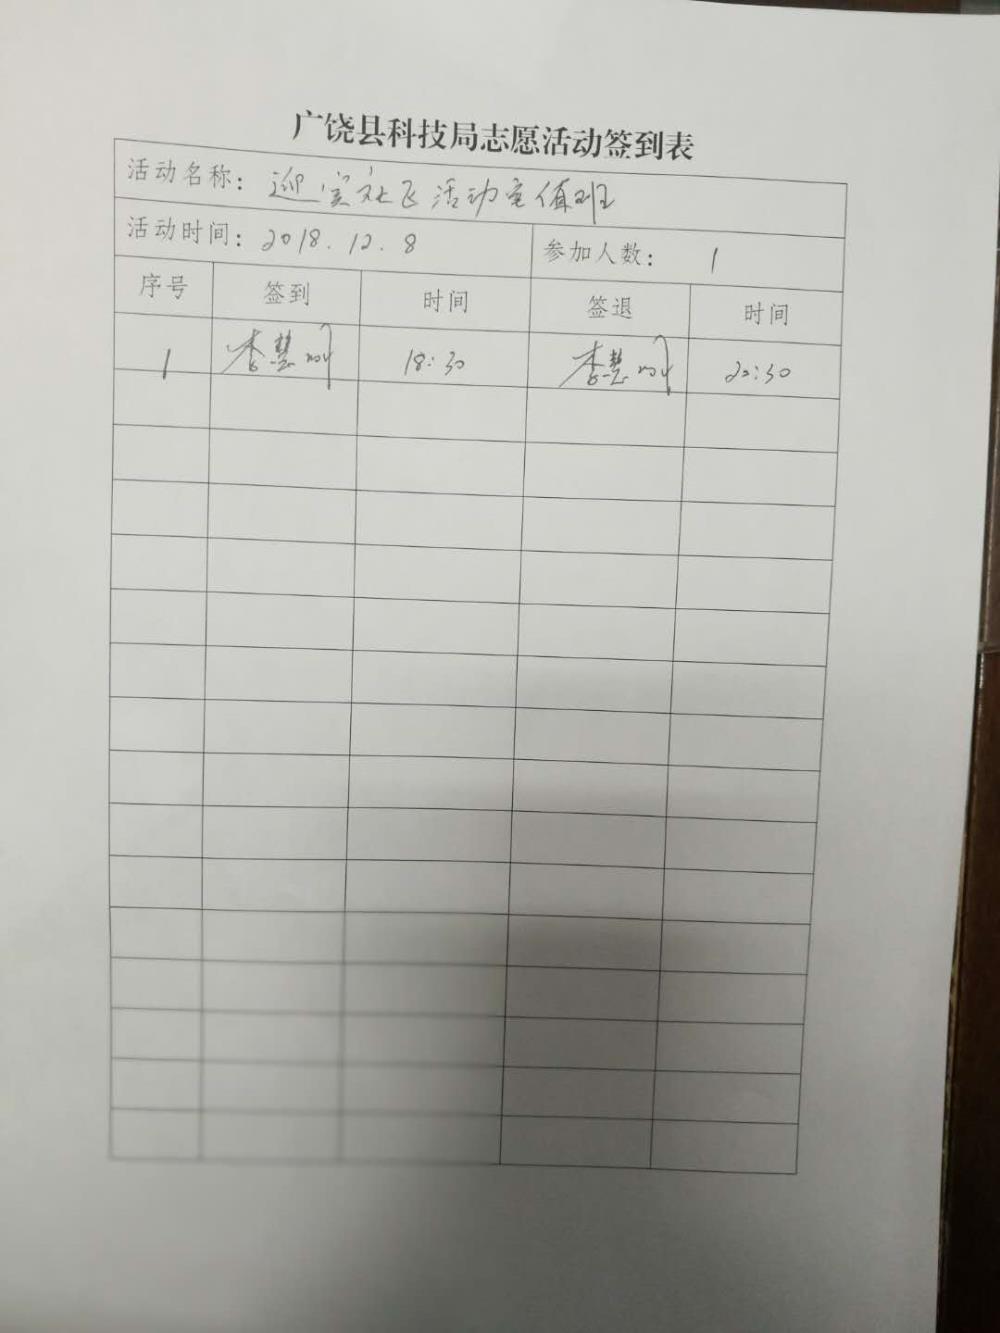 广饶县科技局志愿活动签到表
活动名称：迎宾社区活动室值班
活动时间：2018.12.8 参加人数：1
序号 签到 时间 签退 时间
1 李慧 18:30 李慧 20:30